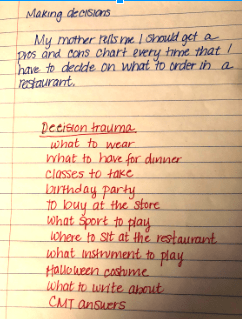 Making decisions
My mother tells me I should get a
pros and cons chart every time that I
have to decide on what to order in a
restaurant.
Decision trauma
what to wear
what to have for dinner
classes to take
birthday party
to buy at the store
What sport to play
where to sit at the restaurant
what instrument to play
Halloween costume
what to write about
CMT answers